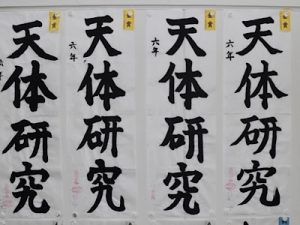 天体研究
六年
天体研究
六年
天体研究
六年
天体研究